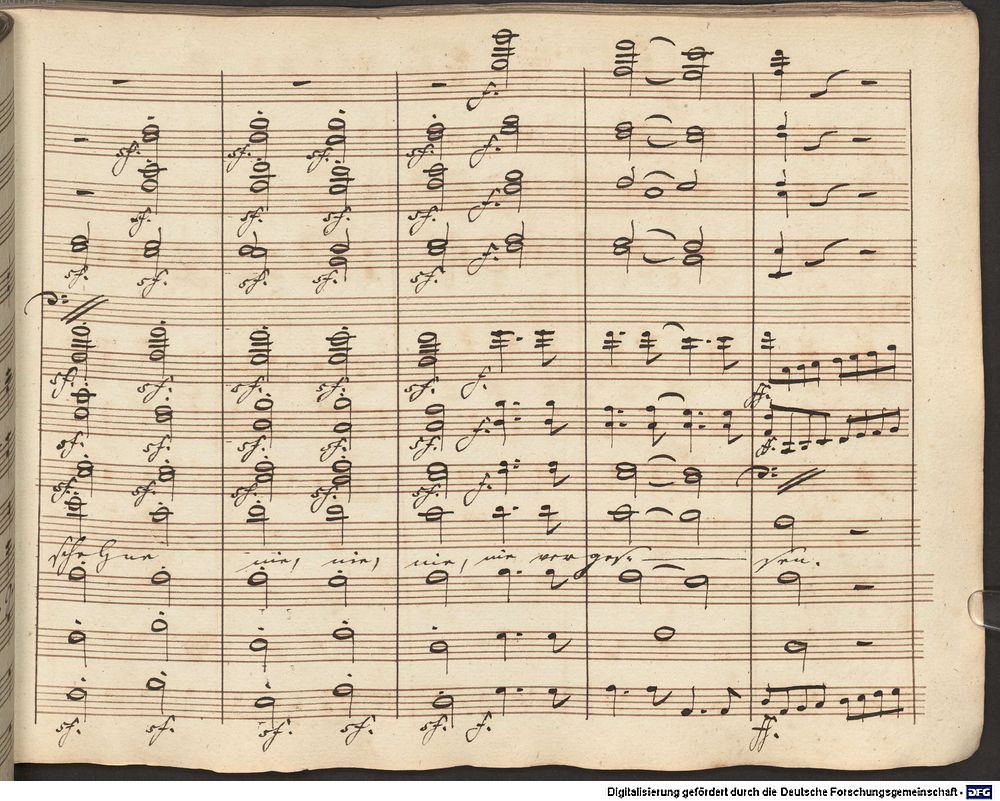 f.
sf. sf. sf. sf. f.
sf. sf. sf. sf. f.
sf. sf. sf. sf. sf. f.
sf. sf. sf. sf. sf. f. ff.
sf. sf. sf. sf. sf. f. ff.
sf. sf. sf. sf. sf. f.
nie, nie, nie, nie verges- sen.
sf. sf. sf. sf. sf. f. ff.
Digitalisierung gefördert durch die Deutsche Forschungsgemeinschaft - DFG